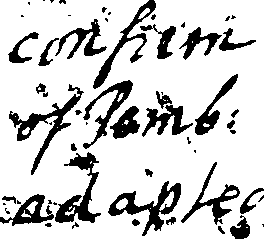 confirm
of Jamb:
adapted